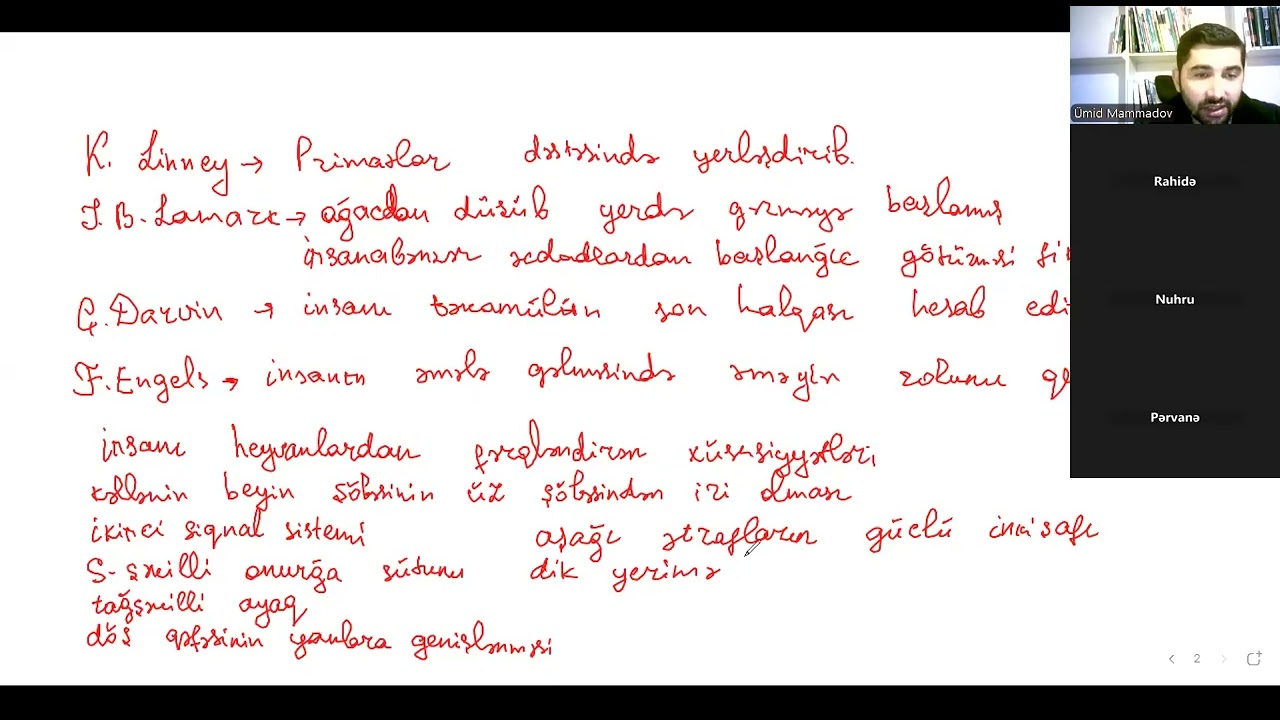 K. Linney → Primatlar dəstəsində yerləşdirib.
J.B. Lamark → ağacdan düşüb yerdə gəzməyə başlamış
insanabənzər əcdadlardan başlanğıc götürməsi fi
Ç. Darvin → insanı təkamülün son halqası hesab edi
F. Engels → insanın əmələ gəlməsində əməyin rolunu qe
insanı heyvanlardan fərqləndirən xüsusiyyətləri,
kəllənin beyin şöbəsinin üz şöbəsindən iri olması
ikinci siqnal sistemi aşağı ətrafların güclü inkişafı
S-şəkilli onurğa sütunu dik yerimə
tağşəkilli ayaq
döş qəfəsinin yanlara genişlənməsi
Ümid Mammadov
Rahidə
Nuhru
Pərvanə
2